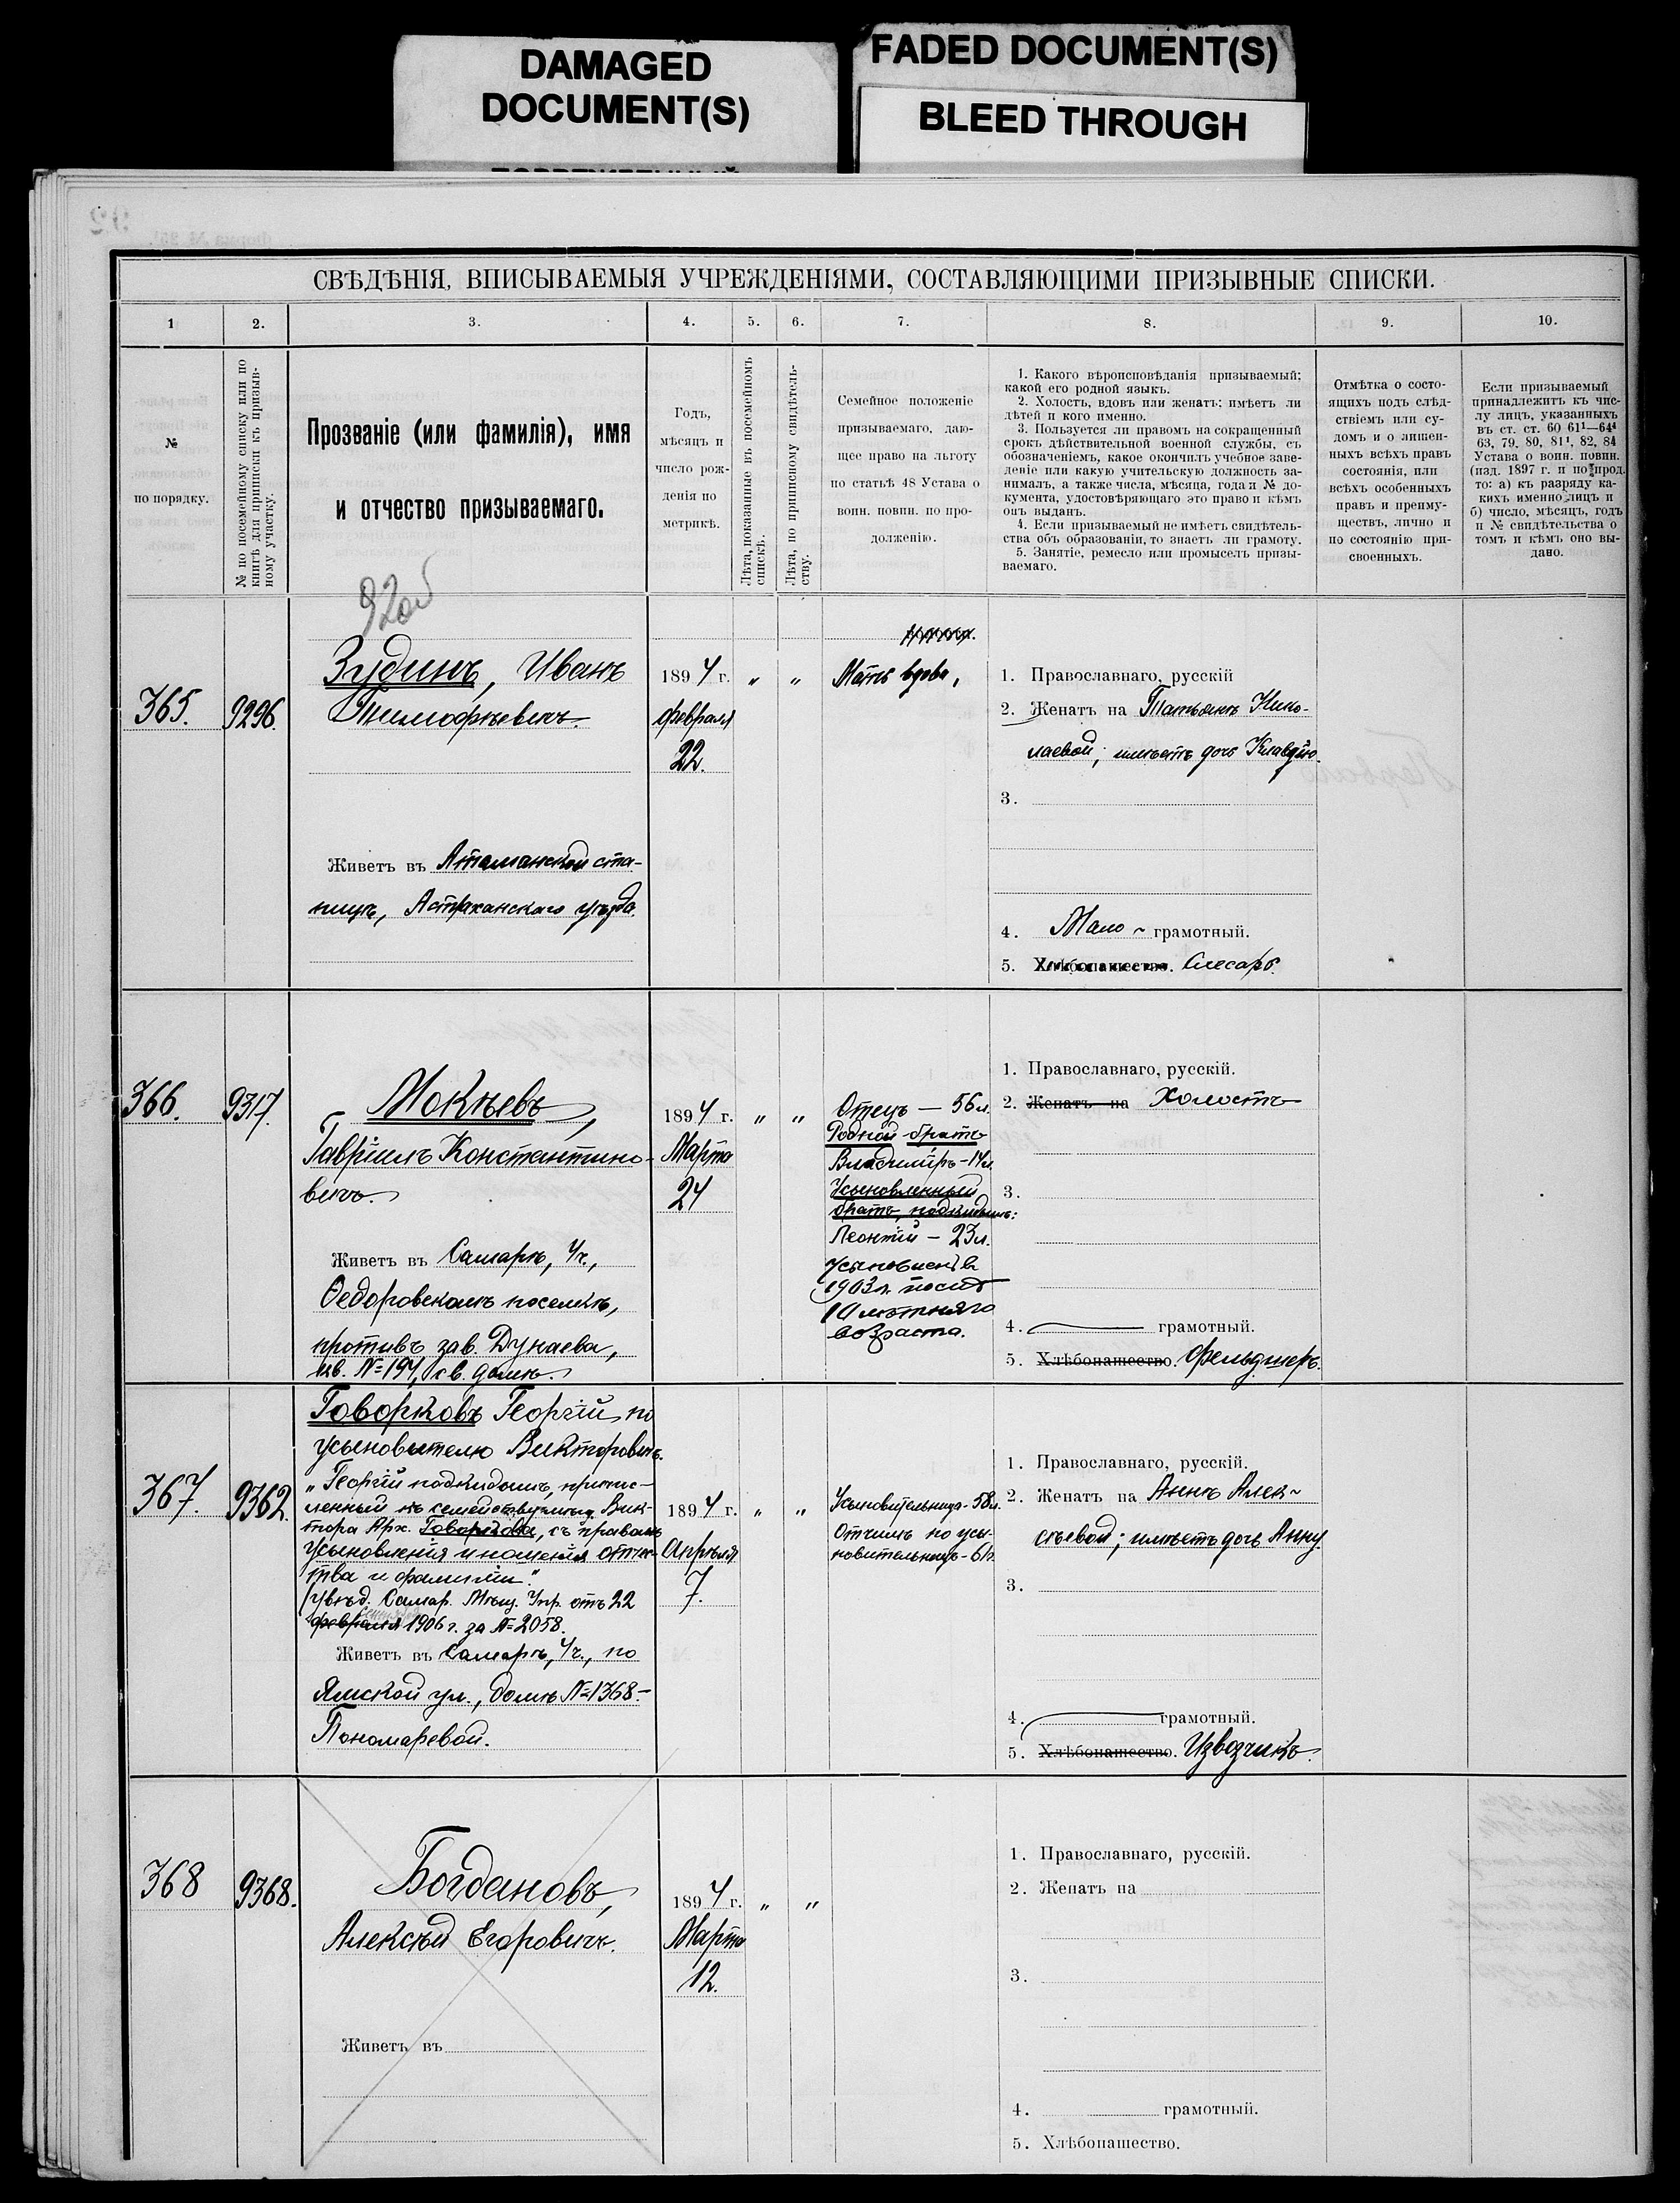 DAMAGED
DOCUMENT(S)
FADED DOCUMENT(S)
BLEED THROUGH
СВѢДѢНІЯ, ВПИСЫВАЕМЫЯ УЧРЕЖДЕНІЯМИ, СОСТАВЛЯЮЩИМИ ПРИЗЫВНЫЕ СПИСКИ.
1
2.
3.
4.
5.
6.
7.
8.
9.
10.
№
по порядку.
№ по посемейному списку или по
книгѣ для приписки къ призыв-
ному участку.
Прозваніе (или фамилія), имя
и отчество призываемаго.
Годъ,
мѣсяцъ и
число рож-
денія по
метрикѣ.
Лѣта, показанные въ посемейномъ
спискѣ.
Лѣта, по приписному свидѣтель-
ству.
Семейное положеніе
призываемаго, даю-
щее право на льготу
по статьѣ 48 Устава о
воин. повин. по про-
долженію.
1. Какого вѣроисповѣданія призываемый;
какой его родной языкъ.
2. Холостъ, вдовъ или женатъ; имѣетъ ли
дѣтей и кого именно.
3. Пользуется ли правомъ на сокращенный
срокъ дѣйствительной военной службы, съ
обозначеніемъ, какое окончилъ учебное заве-
деніе или какую учительскую должность за-
нималъ, а также числа, мѣсяца, года и № до-
кумента, удостовѣряющаго это право и кѣмъ
онъ выданъ.
4. Если призываемый не имѣетъ свидѣтель-
ства объ образованіи, то знаетъ ли грамоту.
5. Занятіе, ремесло или промыселъ призы-
ваемаго.
Отмѣтка о состо-
ящихъ подъ слѣд-
ствіемъ или су-
домъ и о лишен-
ныхъ всѣхъ правъ
состоянія, или
всѣхъ особенныхъ
правъ и преиму-
ществъ, лично и
по состоянію при-
своенныхъ.
Если призываемый
принадлежитъ къ чис-
лу лицъ, указанныхъ
въ ст. ст. 60 61¹—64⁴
63, 79, 80, 81¹, 82, 84
Устава о воин. повин.
(изд. 1897 г. и по прод.
то: а) къ разряду ка-
кихъ именно лицъ и
б) число, мѣсяцъ, годъ
и № свидѣтельства о
томъ и кѣмъ оно вы-
дано.
92об
365.
9296.
Зудинъ, Иванъ
Тимофѣевичъ.
Живетъ въ Атаманской ста-
ницѣ, Астраханскаго уѣзда.
1894 г.
февраля
22.
"
"
Мать вдова,
1. Православнаго, русскій
2. Женатъ на Татьянѣ Нико-
лаевой; имѣетъ дочь Клавдію.
3.
4. Мало - грамотный.
5. Хлѣбопашество. Слесарь.
366.
9317.
Мокѣевъ,
Гавріилъ Константино-
вичъ.
Живетъ въ Самарѣ, 4ч.,
Федоровскомъ поселкѣ,
противъ зав. Дунаева,
кв. №194, св. домъ.
1894 г.
Марта
24
"
"
Отецъ — 56л.
Родной братъ
Владиміръ-14л.
Усыновленный
братъ, подкидышъ:
Леонтій — 23л.
усыновленъ въ
1903г. послѣ
10 лѣтняго
возраста.
1. Православнаго, русскій.
2. Женатъ на Холостъ
3.
4. грамотный.
5. Хлѣбопашество. Фельдшеръ.
367.
9362.
Говорковъ Георгій, по
усыновителю Викторовичъ.
„Георгій подкидышъ, причис-
ленный къ семейству мѣщ. Вик-
тора Арх. Говоркова, съ правомъ
усыновления и ношенія отчес-
тва и фамиліи".
/увѣд. Самар. Мѣщ. Упр. отъ 22
февраля 1906 г. за №2058.
Живетъ въ Самарѣ, 4ч., по
Ямской ул., домъ №1368-
Пономаревой.
1894 г.
Апрѣля
7.
"
"
Усыновительница-58л.
Отчимъ по усы-
новительницѣ-61г.
1. Православнаго, русскій.
2. Женатъ на Аннѣ Алек-
сѣевой; имѣетъ дочь Анну.
3.
4. грамотный.
5. Хлѣбопашество. Извозчикъ.
368
9368.
Богдановъ,
Алексѣй Егоровичъ.
Живетъ въ
1894 г.
Марта
12.
"
"
1. Православнаго, русскій.
2. Женатъ на
3.
4. грамотный.
5. Хлѣбопашество.